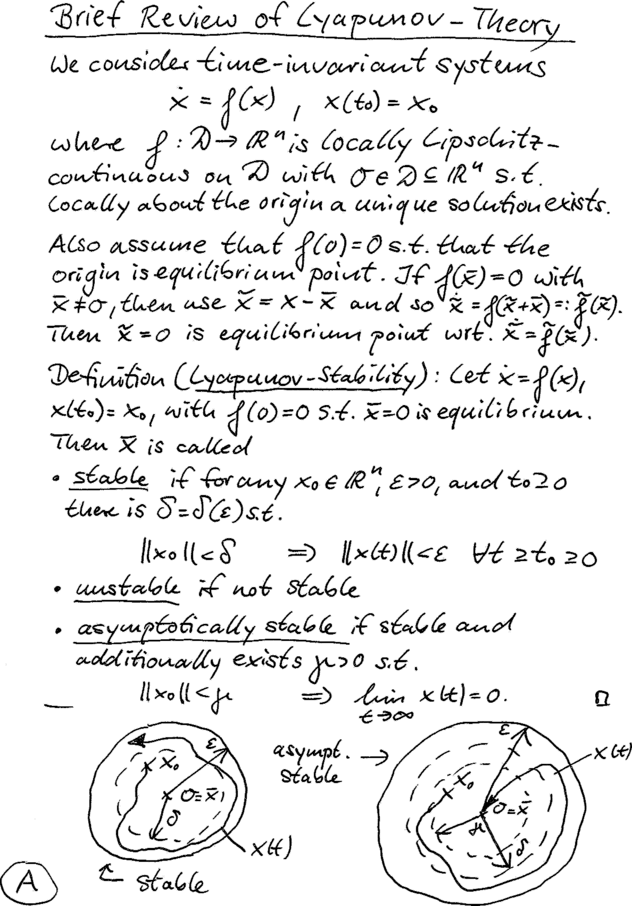 Brief Review of Lyapunov-Theory
We consider time-invariant systems
ẋ = f(x) , x(t₀) = x₀
where f : D → ℝⁿ is locally Lipschitz-
continuous on D with 0 ∈ D ⊆ ℝⁿ s.t.
locally about the origin a unique solution exists.
Also assume that f(0)=0 s.t. that the
origin is equilibrium point. If f(x̄)=0 with
x̄≠0, then use x̃ = x - x̄ and so ẋ̃ = f(x̃+x̄) =: f̃(x̃).
Then x̃=0 is equilibrium point wrt. ẋ̃ = f̃(x̃).
Definition (Lyapunov-Stability): Let ẋ=f(x),
x(t₀)=x₀, with f(0)=0 s.t. x̄=0 is equilibrium.
Then x̄ is called
• stable if for any x₀∈ℝⁿ, ε>0, and t₀≥0
there is δ=δ(ε) s.t.
||x₀||<δ ⇒ ||x(t)||<ε ∀t ≥t₀ ≥0
• unstable if not stable
• asymptotically stable if stable and
additionally exists μ>0 s.t.
||x₀||<μ ⇒ lim x(t)=0. □
t→∞
ε
x₀
0=x̄
δ
x(t)
stable
asympt. →
stable
ε
x(t)
x₀
0=x̄
μ
δ
A